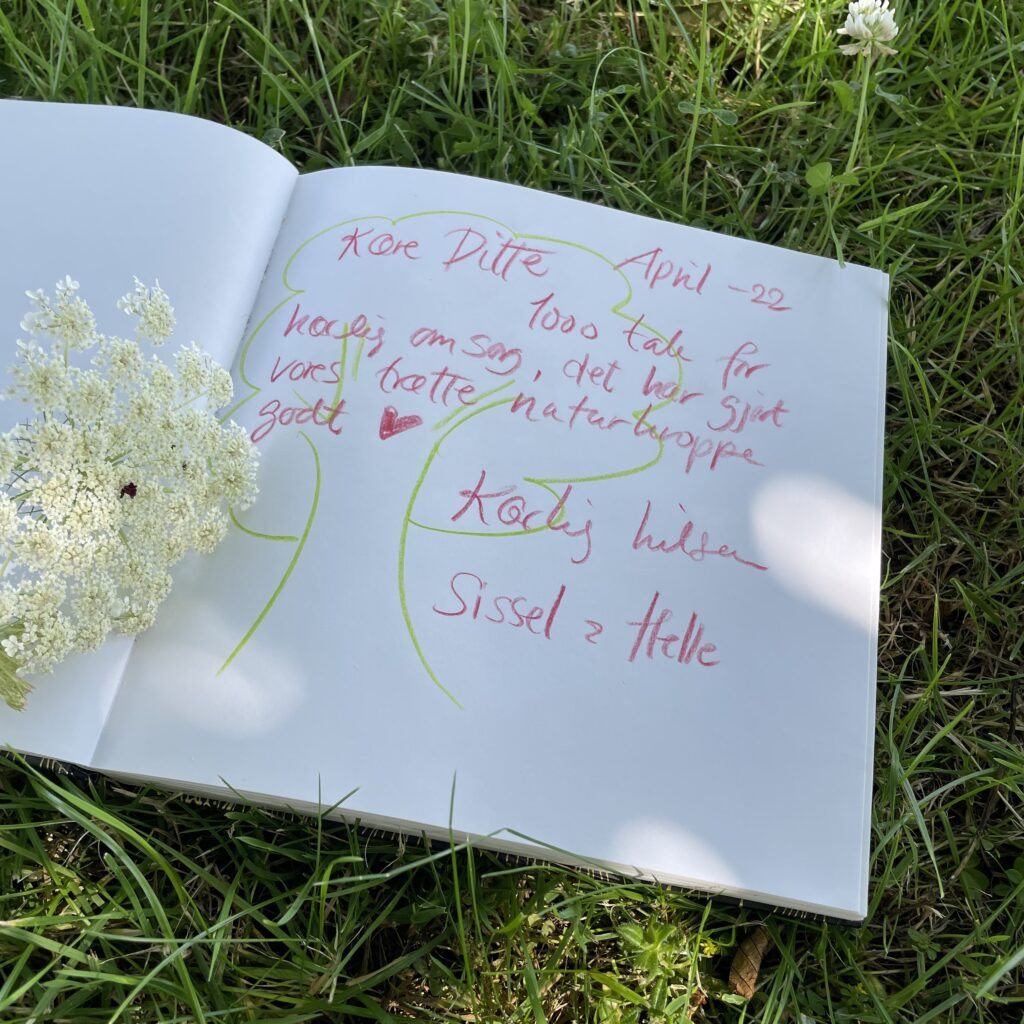 Kære Ditte April -22
1000 tak for
kærlig omsorg, det har gjort
vores trætte naturkroppe
godt ♥
Kærlig hilsen
Sissel & Helle